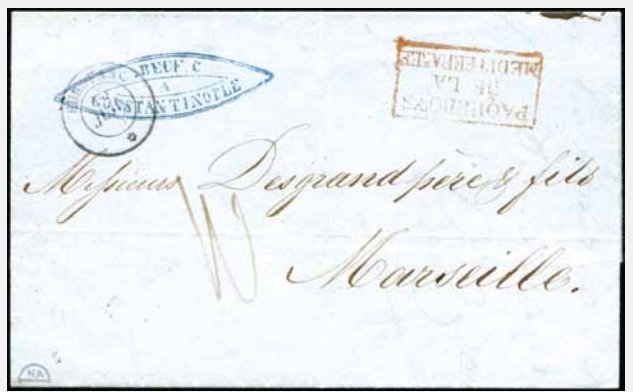 BEUF. C
A
CONSTANTINOPLE
PAQUEBOTS
DE LA
MEDITERRANEE
Messieurs Desgrand père & fils
Marseille.